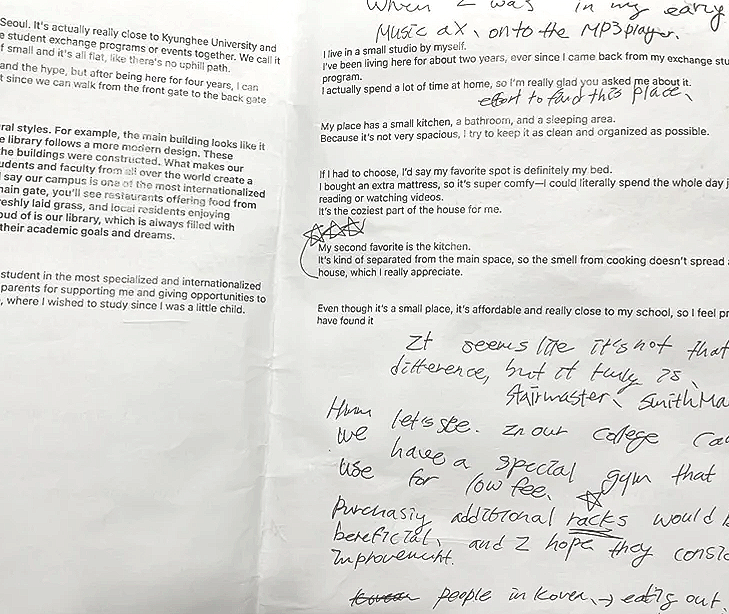 Seoul. It's actually really close to Kyunghee University and
e student exchange programs or events together. We call it
f small and it's all flat, like there's no uphill path.
and the hype, but after being here for four years, I can
t since we can walk from the front gate to the back gate
ral styles. For example, the main building looks like it
e library follows a more modern design. These
he buildings were constructed. What makes our
udents and faculty from all over the world create a
say our campus is one of the most internationalized
main gate, you'll see restaurants offering food from
reshly laid grass, and local residents enjoying
oud of is our library, which is always filled with
their academic goals and dreams.
student in the most specialized and internationalized
parents for supporting me and giving opportunities to
, where I wished to study since I was a little child.
When I was in my early
Music ax, onto the MP3 player.
I live in a small studio by myself.
I've been living here for about two years, ever since I came back from my exchange stu
program.
I actually spend a lot of time at home, so I'm really glad you asked me about it.
effort to find this place,
My place has a small kitchen, a bathroom, and a sleeping area.
Because it's not very spacious, I try to keep it as clean and organized as possible.
If I had to choose, I'd say my favorite spot is definitely my bed.
I bought an extra mattress, so it's super comfy—I could literally spend the whole day j
reading or watching videos.
It's the coziest part of the house for me.
My second favorite is the kitchen.
It's kind of separated from the main space, so the smell from cooking doesn't spread a
house, which I really appreciate.
Even though it's a small place, it's affordable and really close to my school, so I feel pr
have found it
It seems like it's not that
difference, but it truly is,
Stairmaster, Smith Ma
Hmm let's see. In our college Ca
we have a special gym that
use for low fee.
Purchasing additional racks would b
beneficial, and I hope they consid
improvement.
Korean people in Korea → eating out.